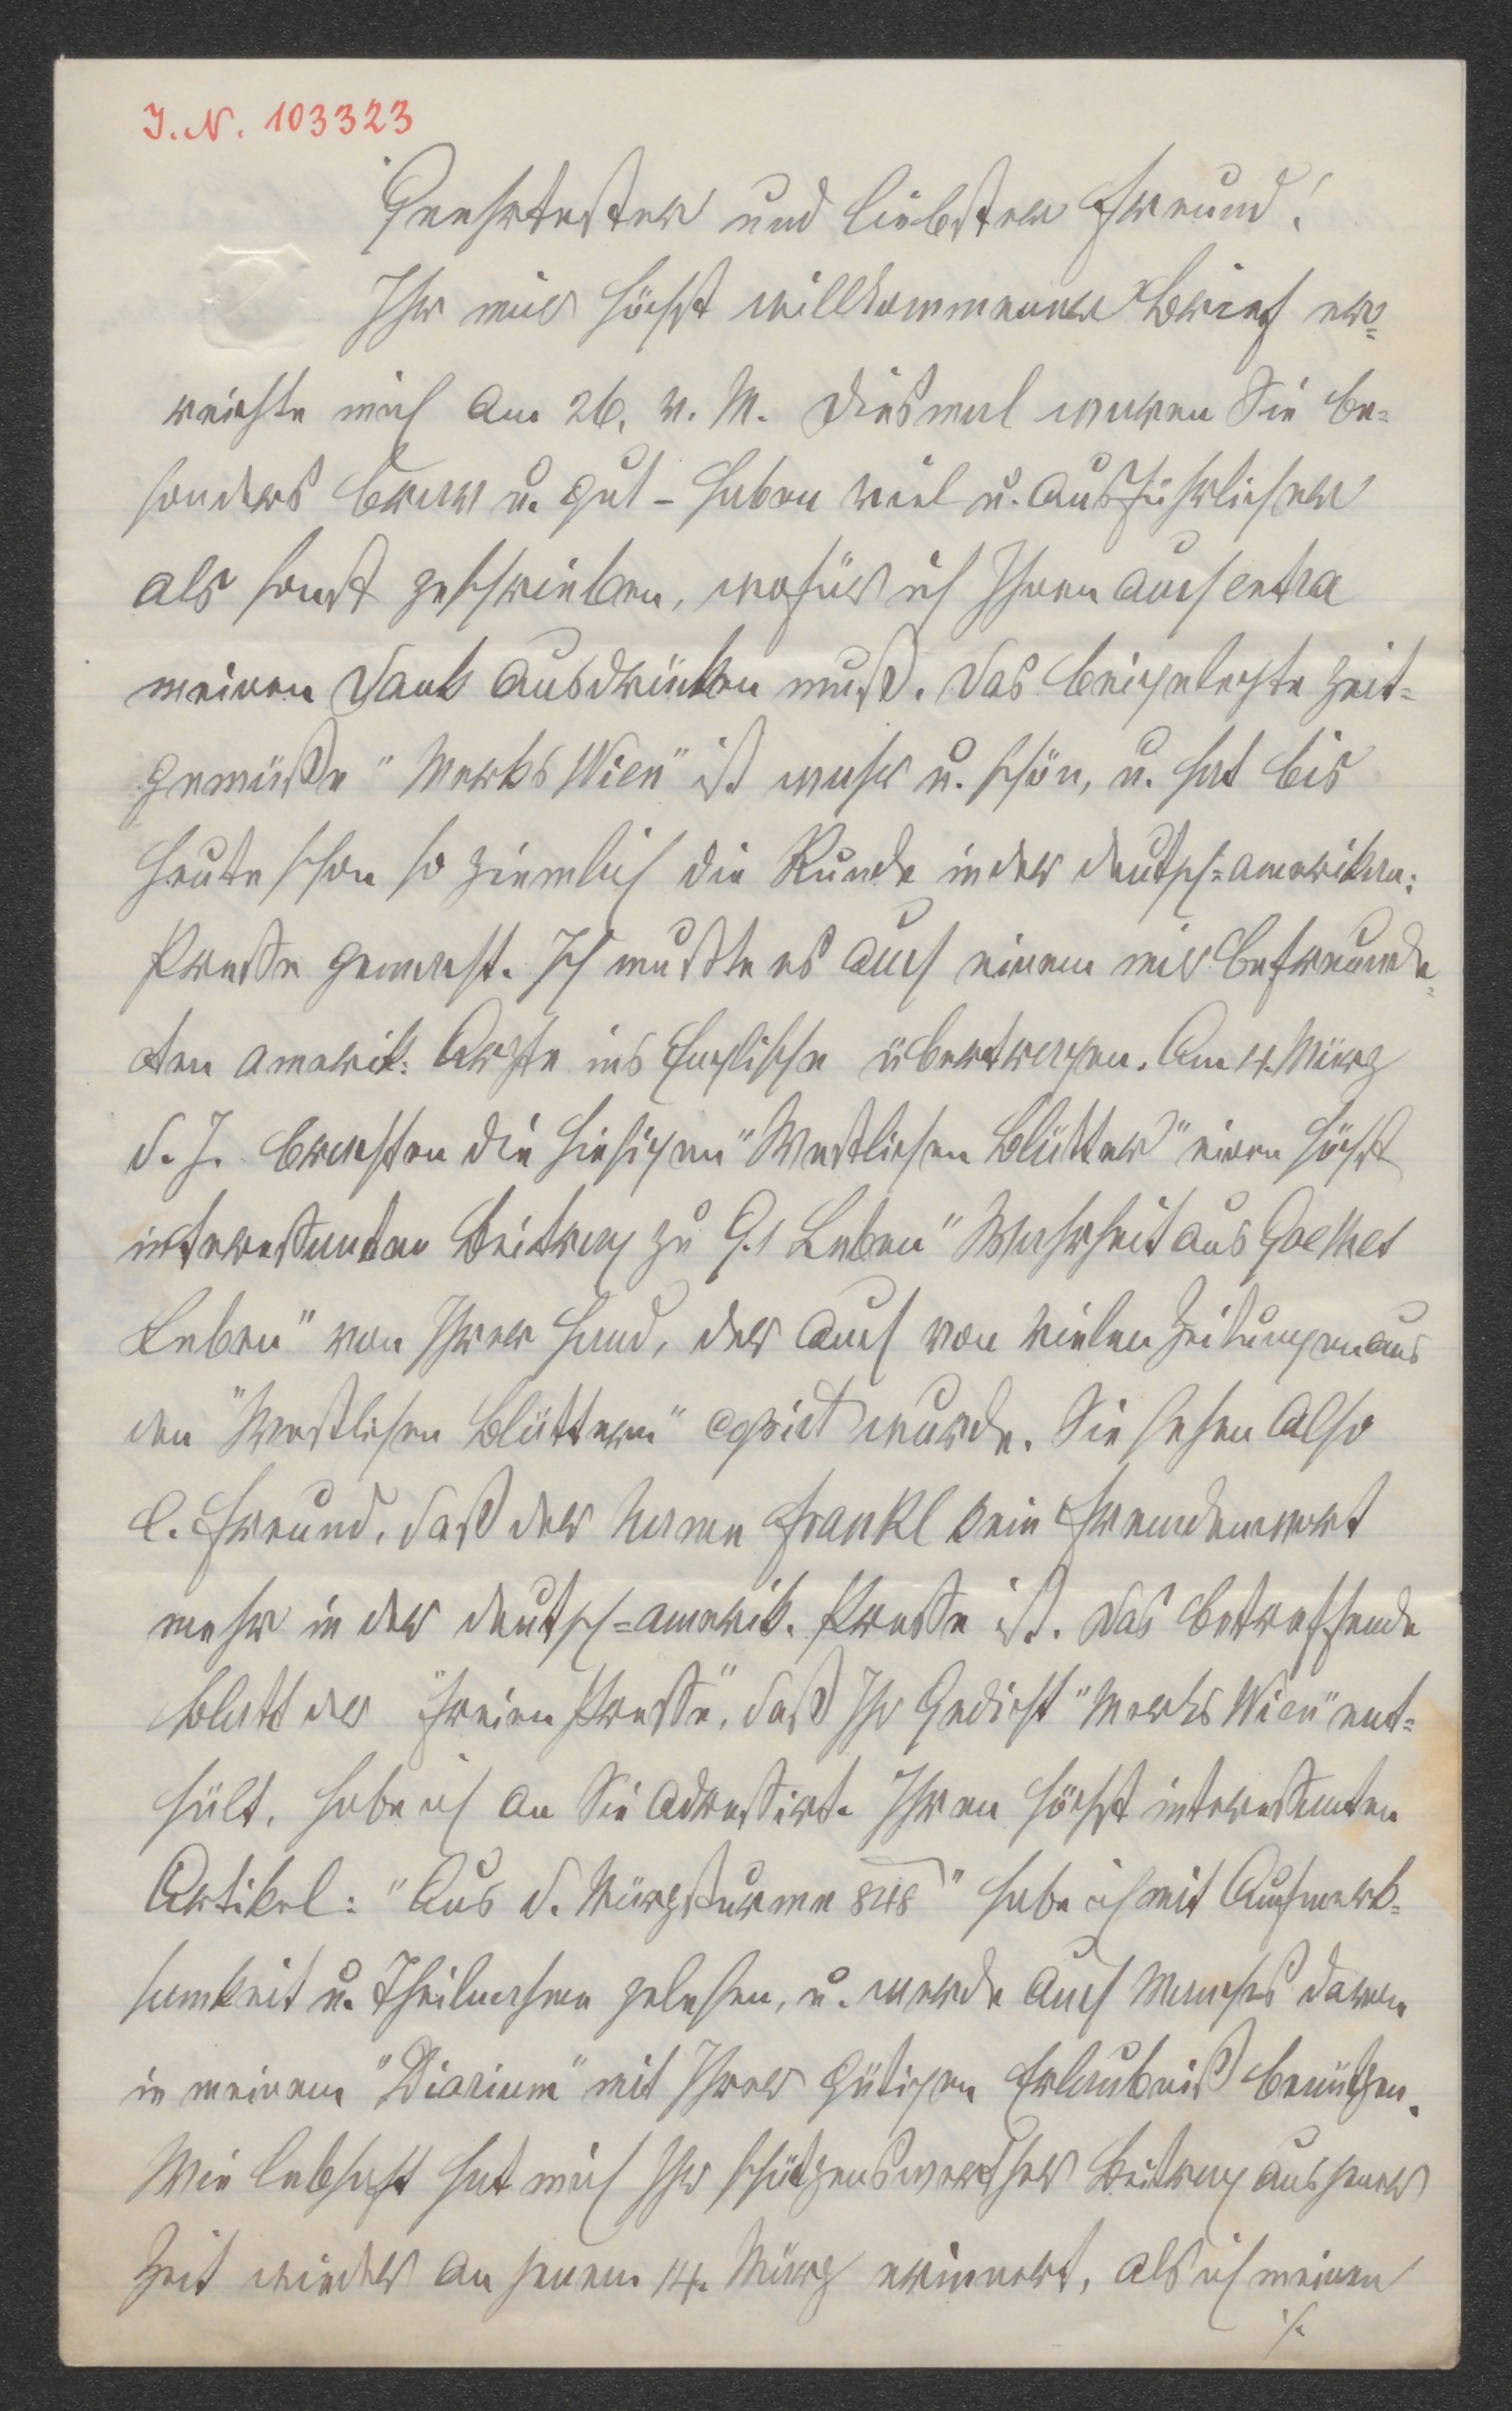 I. N. 103323
Geehrtester und liebster Freund!
Ihr mir höchst willkommener Brief er=
reichte mich am 26. v. M. Diesmal waren Sie be=
sonders brav u. gut – haben viel u. ausführlicher
als sonst geschrieben, wofür ich Ihnen auch extra
meinen Dank ausdrücken muß. Das beigelegte zeit=
gemäße "Merks Wien" ist wahr u. schön, u. hat bis
heute schon so ziemlich die Runde in der deutsch=amerikan:
Presse gemacht. Ich mußte es auch einem mir befreunde=
ten amerik: Arzte ins Englische übertragen. Am 4. März
d. J. brachten die hiesigen "Westlichen Blätter" einen höchst
interessanten Beitrag zu G.s Leben "Wahrheit aus Goethes
Leben" von Ihrer Hand, der auch von vielen Zeitungen aus
den "Westlichen Blättern" copirt wurde. Sie sehen also
l. Freund, daß der Name Frankl kein Fremdenwort
mehr in der deutsch=amerik. Presse ist. Das betreffende
Blatt der "Freien Presse", daß Ihr Gedicht "Merks Wien" ent=
hält, habe ich an Sie adressirt. Ihren höchst interessanten
Artikel: "Aus d. Märzsturme 848" habe ich mit Aufmerk=
samkeit u. Theilnahme gelesen, u. werde auch Manches davon
in meinem "Diarium" mit Ihrer gütigen Erlaubniß benützen.
Wie lebhaft hat mich Ihr schätzenswerther Beitrag aus jener
Zeit wieder an jenen 14. März erinnert, als ich meinen
./.